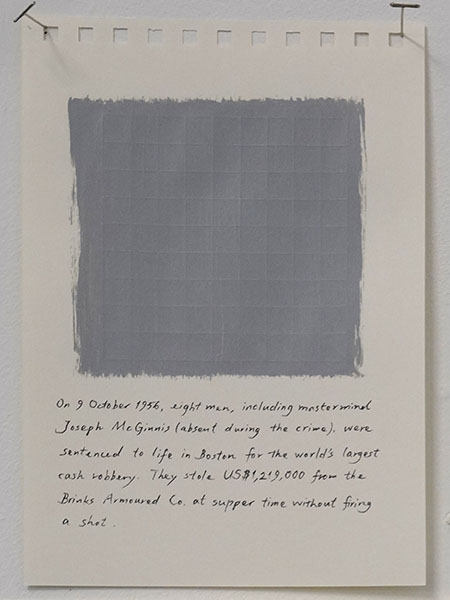 On 9 October 1956, eight men, including mastermind
Joseph McGinnis (absent during the crime), were
sentenced to life in Boston for the world's largest
cash robbery. They stole US$1,219,000 from the
Brinks Armoured Co. at supper time without firing
a shot.